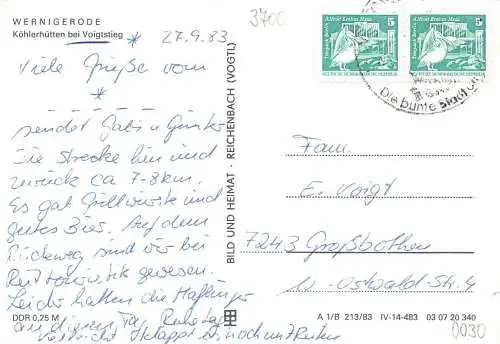 WERNIGERODE
Köhlerhütten bei Voigtstieg
3700
* 27.9.83
Viele Grüße vom
*
sendet Gabi u Günter
Die Strecke hin und
zurück ca 7-8km.
Es gab Grillwürste und
gutes Bier. Auf dem
Rückweg sind wir bei
gewesen.
Leider hatten die Haflinger
an diesem Tag Ruhetag
noch m Reiten
DDR 0,25 M
BILD UND HEIMAT · REICHENBACH (VOGTL)
Tierpark Berlin
Alfred Brehm Haus
5
DEUTSCHE DEMOKRATISCHE REPUBLIK
Tierpark Berlin
Alfred Brehm Haus
5
DEUTSCHE DEMOKRATISCHE REPUBLIK
Die bunte Stadt
Fam.
E. Voigt
7243 Großbothen
W.-Ostwald-Str. 4
A 1/B 213/83 IV-14-483 03 07 20 340
0030